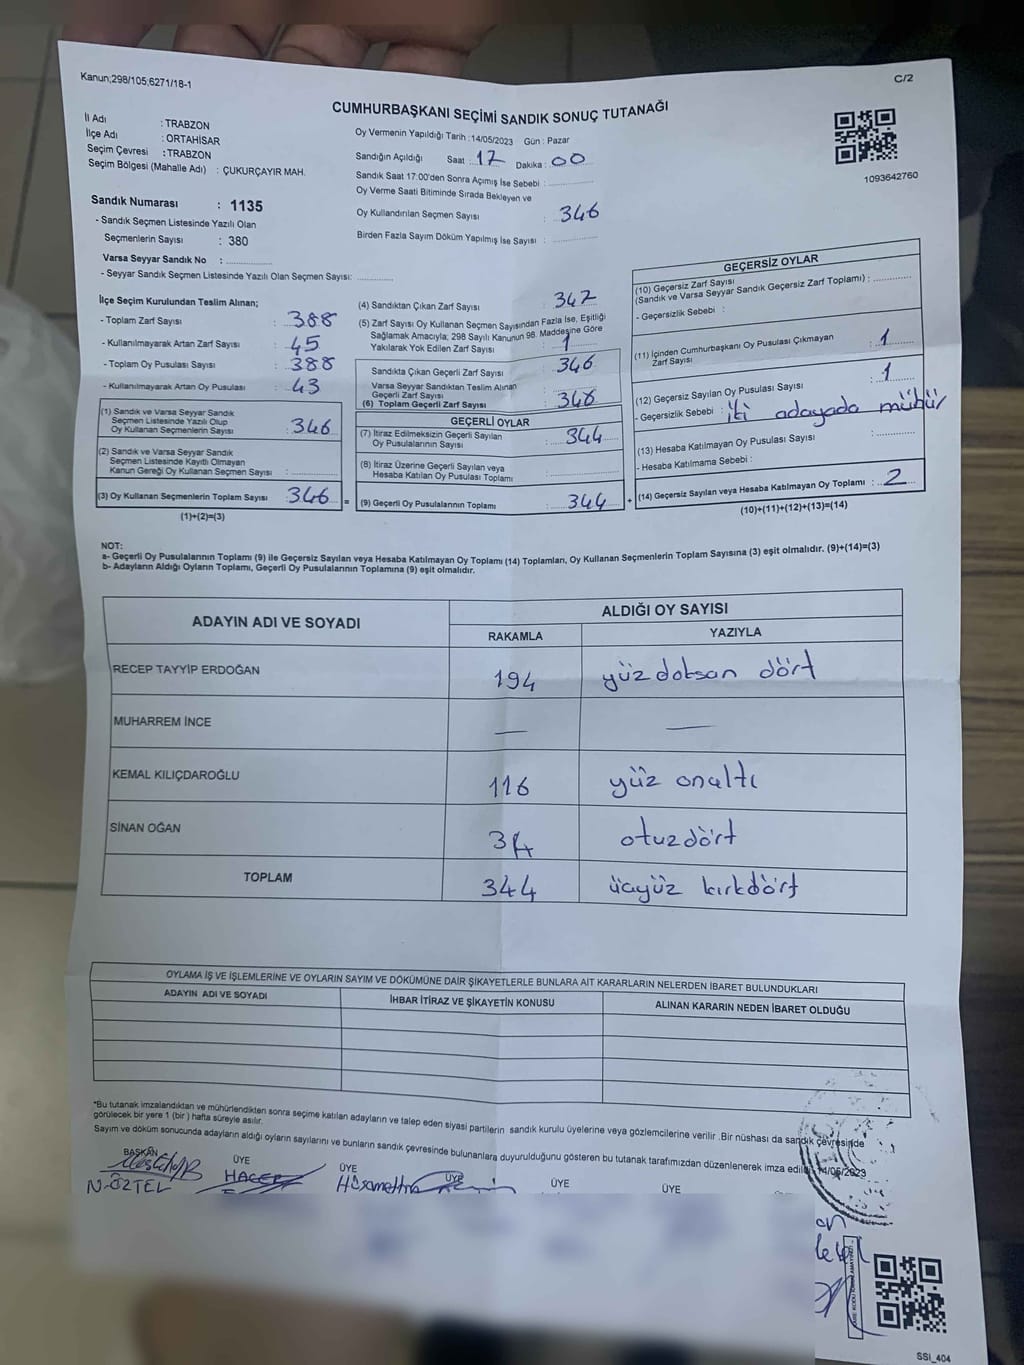 Kanun;298/105;6271/18-1
C/2
CUMHURBAŞKANI SEÇİMİ SANDIK SONUÇ TUTANAĞI
İl Adı : TRABZON
İlçe Adı : ORTAHİSAR
Seçim Çevresi : TRABZON
Seçim Bölgesi (Mahalle Adı) : ÇUKURÇAYIR MAH.
Oy Vermenin Yapıldığı Tarih :14/05/2023 Gün : Pazar
Sandığın Açıldığı Saat : 17 Dakika : 00
Sandık Saat 17:00'den Sonra Açımış İse Sebebi :
Oy Verme Saati Bitiminde Sırada Bekleyen ve
Oy Kullandırılan Seçmen Sayısı : 346
Birden Fazla Sayım Döküm Yapılmış İse Sayısı :
1093642760
Sandık Numarası : 1135
- Sandık Seçmen Listesinde Yazılı Olan
Seçmenlerin Sayısı : 380
Varsa Seyyar Sandık No :
- Seyyar Sandık Seçmen Listesinde Yazılı Olan Seçmen Sayısı:
İlçe Seçim Kurulundan Teslim Alınan;
- Toplam Zarf Sayısı : 388
- Kullanılmayarak Artan Zarf Sayısı : 45
- Toplam Oy Pusulası Sayısı : 388
- Kullanılmayarak Artan Oy Pusulası : 43
(1) Sandık ve Varsa Seyyar Sandık
Seçmen Listesinde Yazılı Olup
Oy Kullanan Seçmenlerin Sayısı : 346
(2) Sandık ve Varsa Seyyar Sandık
Seçmen Listesinde Kayıtlı Olmayan
Kanun Gereği Oy Kullanan Seçmen Sayısı :
(3) Oy Kullanan Seçmenlerin Toplam Sayısı : 346 =
(1)+(2)=(3)
(4) Sandıktan Çıkan Zarf Sayısı : 347
(5) Zarf Sayısı Oy Kullanan Seçmen Sayısından Fazla İse, Eşitliği
Sağlamak Amacıyla; 298 Sayılı Kanunun 98. Maddesine Göre
Yakılarak Yok Edilen Zarf Sayısı : 1
Sandıkta Çıkan Geçerli Zarf Sayısı : 346
Varsa Seyyar Sandıktan Teslim Alınan
Geçerli Zarf Sayısı :
(6) Toplam Geçerli Zarf Sayısı : 346
GEÇERLİ OYLAR
(7) İtiraz Edilmeksizin Geçerli Sayılan
Oy Pusulalarının Sayısı : 344
(8) İtiraz Üzerine Geçerli Sayılan veya
Hesaba Katılan Oy Pusulası Toplamı :
(9) Geçerli Oy Pusulalarının Toplamı : 344 +
GEÇERSİZ OYLAR
(10) Geçersiz Zarf Sayısı
(Sandık ve Varsa Seyyar Sandık Geçersiz Zarf Toplamı) :
- Geçersizlik Sebebi :
(11) İçinden Cumhurbaşkanı Oy Pusulası Çıkmayan
Zarf Sayısı : 1
(12) Geçersiz Sayılan Oy Pusulası Sayısı : 1
- Geçersizlik Sebebi : iki adayada mühür
(13) Hesaba Katılmayan Oy Pusulası Sayısı :
- Hesaba Katılmama Sebebi :
(14) Geçersiz Sayılan veya Hesaba Katılmayan Oy Toplamı : 2
(10)+(11)+(12)+(13)=(14)
NOT:
a- Geçerli Oy Pusulalarının Toplamı (9) ile Geçersiz Sayılan veya Hesaba Katılmayan Oy Toplamı (14) Toplamları, Oy Kullanan Seçmenlerin Toplam Sayısına (3) eşit olmalıdır. (9)+(14)=(3)
b- Adayların Aldığı Oyların Toplamı, Geçerli Oy Pusulalarının Toplamına (9) eşit olmalıdır.
ADAYIN ADI VE SOYADI
ALDIĞI OY SAYISI
RAKAMLA YAZIYLA
RECEP TAYYİP ERDOĞAN 194 yüzdoksan dört
MUHARREM İNCE — —
KEMAL KILIÇDAROĞLU 116 yüz onaltı
SİNAN OĞAN 34 otuzdört
TOPLAM 344 üçyüz kırkdört
OYLAMA İŞ VE İŞLEMLERİNE VE OYLARIN SAYIM VE DÖKÜMÜNE DAİR ŞİKAYETLERLE BUNLARA AİT KARARLARIN NELERDEN İBARET BULUNDUKLARI
ADAYIN ADI VE SOYADI İHBAR İTİRAZ VE ŞİKAYETİN KONUSU ALINAN KARARIN NEDEN İBARET OLDUĞU
*Bu tutanak imzalandıktan ve mühürlendikten sonra seçime katılan adayların ve talep eden siyasi partilerin sandık kurulu üyelerine veya gözlemcilerine verilir .Bir nüshası da sandık çevresinde
görülecek bir yere 1 (bir ) hafta süreyle asılır.
Sayım ve döküm sonucunda adayların aldığı oyların sayılarını ve bunların sandık çevresinde bulunanlara duyurulduğunu gösteren bu tutanak tarafımızdan düzenlenerek imza edildi. 14/05/2023
BAŞKAN ÜYE ÜYE ÜYE ÜYE ÜYE
N. ÖZTEL HACER Hüsamettin
SSI_404